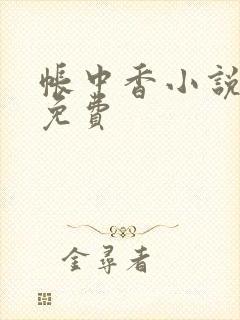 帳中香小說
免費
金尋者